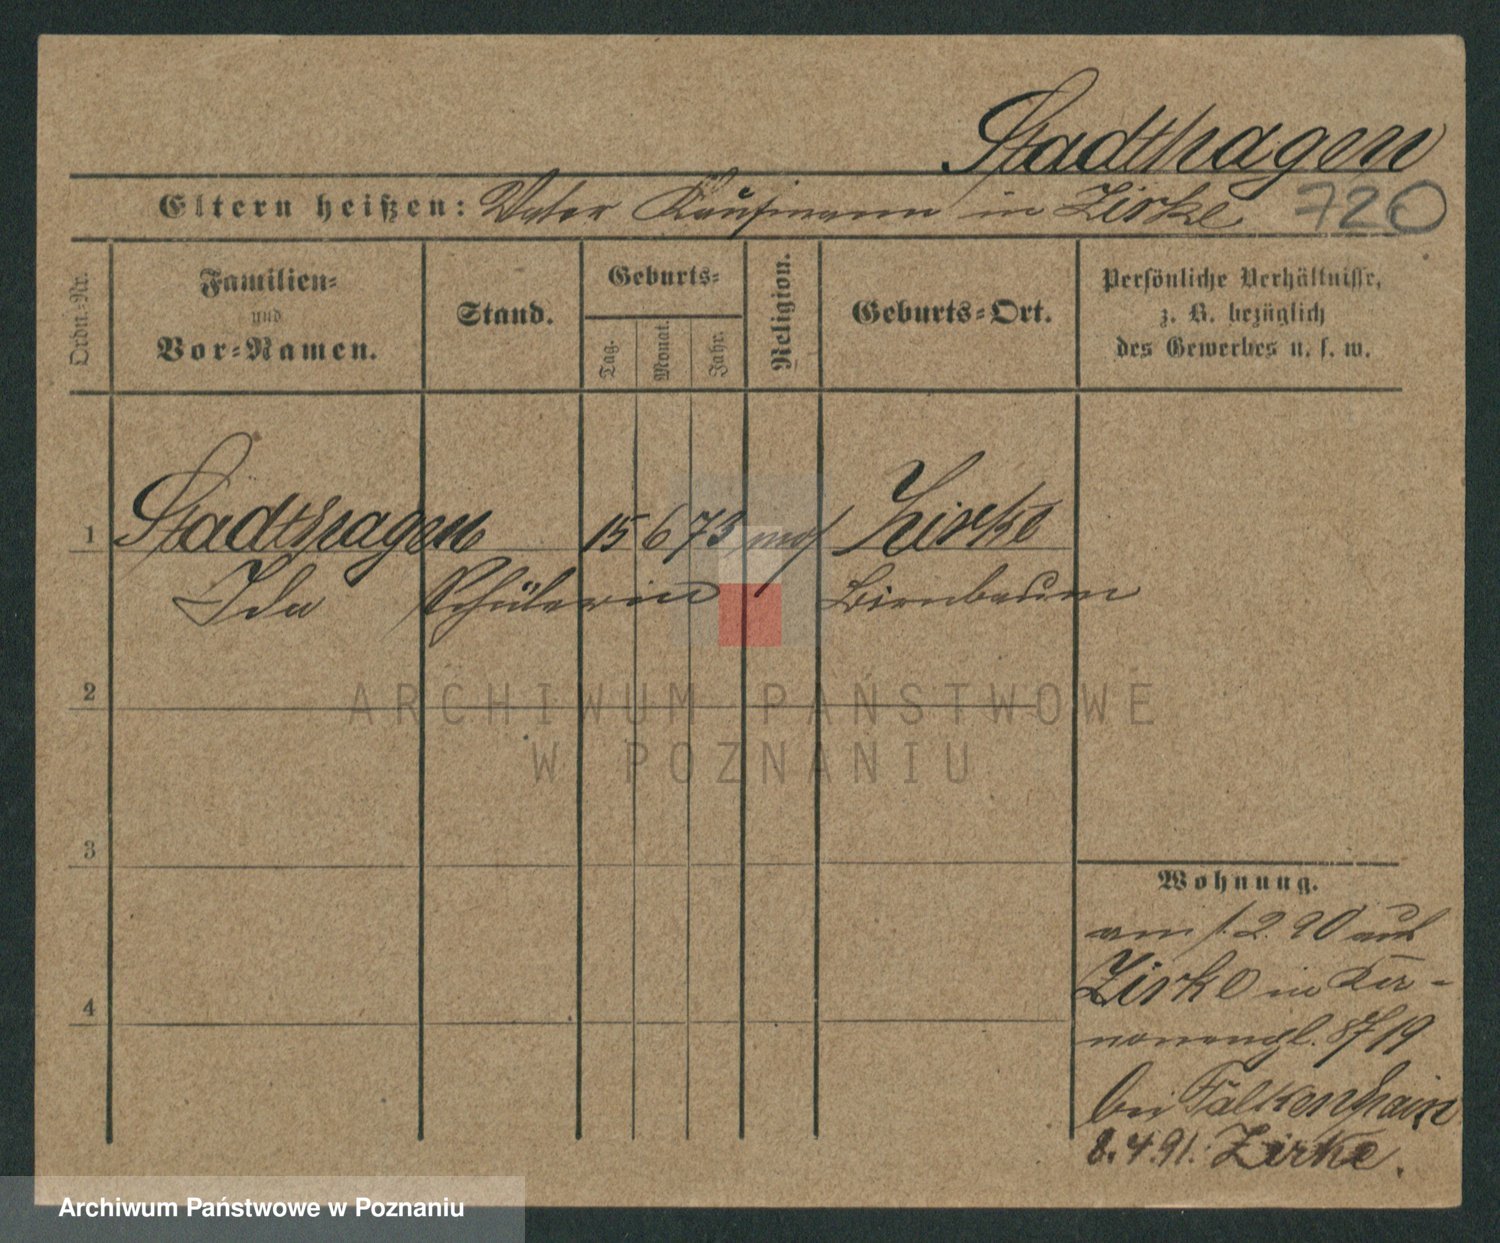 Stadthagen
Eltern heißen: Vater Kaufmann in Zirke 720
Ordn.-Nr.
Familien-
und
Vor-Namen.
Stand.
Geburts-
Tag.
Monat.
Jahr.
Religion.
Geburts-Ort.
Persönliche Verhältnisse,
z. B. bezüglich
des Gewerbes u. s. w.
1 Stadthagen 15 6 73 mos Zirke
Ida Schülerin Birnbaum
2
3
4
Wohnung.
am 1. 2. 90 aus
Zirke in
87/19
bei Falkenhain
8. 4. 91. Zirke.
ARCHIWUM PAŃSTWOWE
W POZNANIU
Archiwum Państwowe w Poznaniu